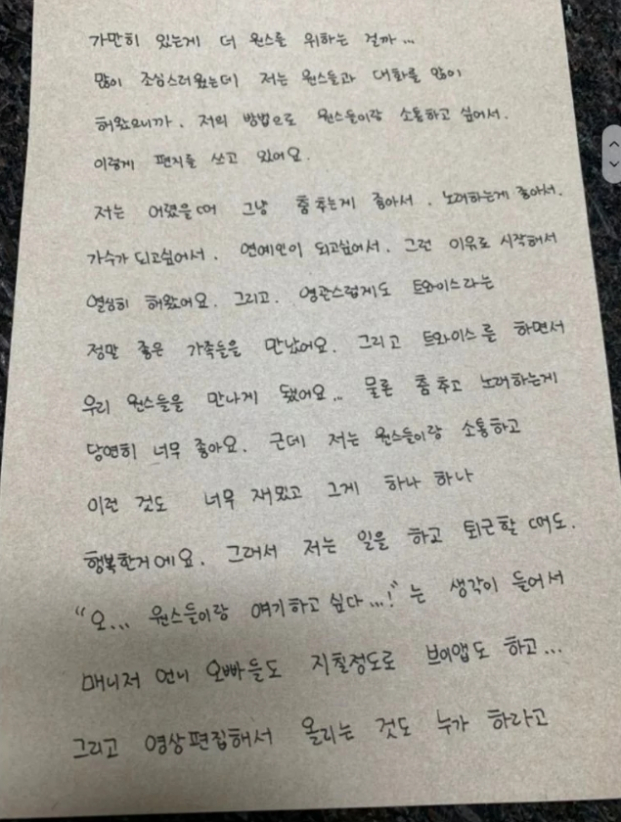 가만히 있는게 더 원스를 위하는 걸까...
많이 조심스러웠는데 저는 원스들과 대화를 많이
해왔으니까. 저의 방법으로 원스들이랑 소통하고 싶어서.
이렇게 편지를 쓰고 있어요.
저는 어렸을때 그냥 춤추는게 좋아서. 노래하는게 좋아서.
가수가 되고싶어서. 연예인이 되고싶어서. 그런 이유로 시작해서
열심히 해왔어요. 그리고. 영광스럽게도 트와이스라는
정말 좋은 가족들을 만났어요. 그리고 트와이스를 하면서
우리 원스들을 만나게 됐어요... 물론 춤추고 노래하는게
당연히 너무 좋아요. 근데 저는 원스들이랑 소통하고
이런 것도 너무 재밌고 그게 하나 하나
행복한거에요. 그래서 저는 일을 하고 퇴근할 때도.
"오... 원스들이랑 얘기하고 싶다...!" 는 생각이 들어서
매니저 언니 오빠들도 지칠정도로 브이앱도 하고...
그리고 영상편집해서 올리는 것도 누가 하라고